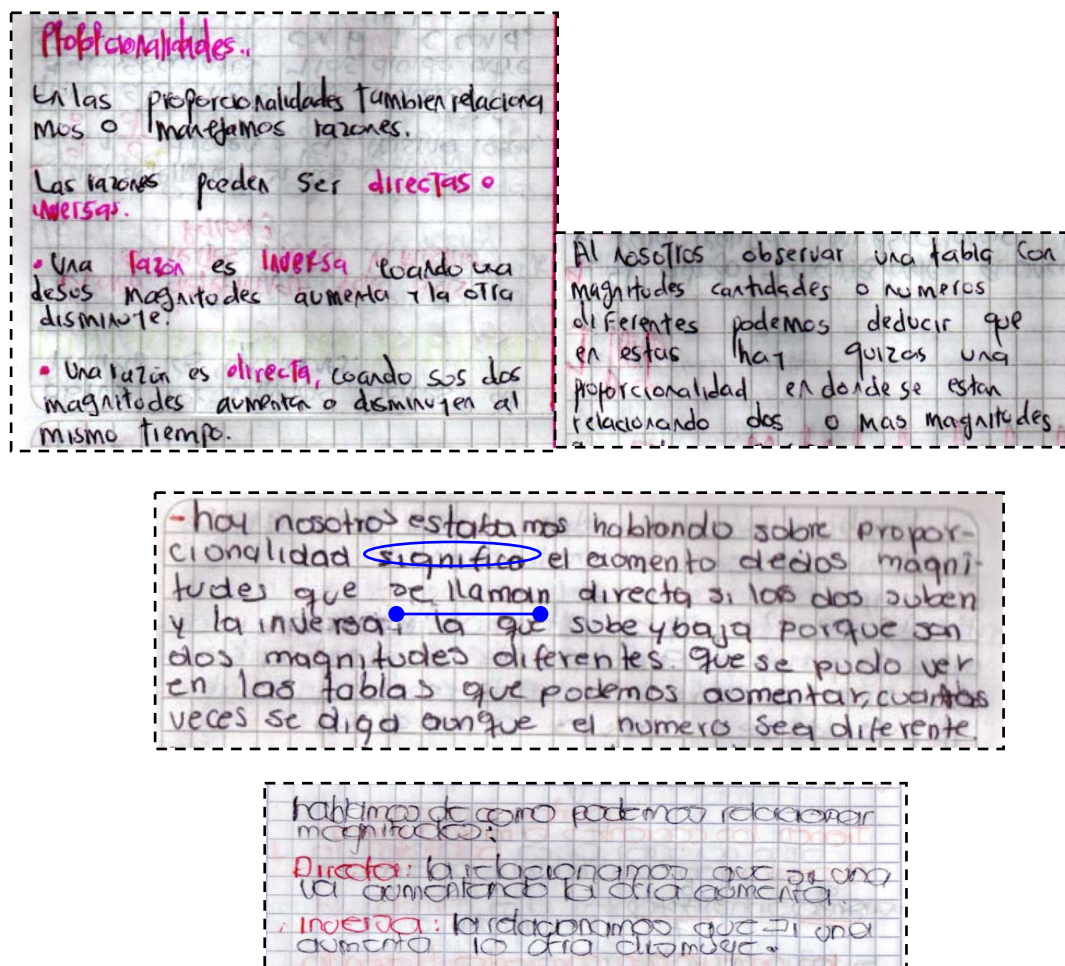 Proporcionalidades..
En las proporcionalidades tambien relaciona
mos o manejamos razones.
Las razones pueden ser directas o
inversas.
• Una razón es inversa coando una
desus magnitudes aumenta y la otra
disminuye.
• Una razón es directa, coando sus dos
magnitudes aumentan o disminuyen al
mismo tiempo.
Al nosotros observar una tabla con
magnitudes cantidades o numeros
diferentes podemos deducir que
en estas hay quizas una
proporcionalidad en donde se estan
relacionando dos o mas magnitudes.
- hoy nosotros estabamos hablando sobre propor-
cionalidad significa el aomento de dos magni-
tudes que se llaman directa si los dos suben
y la inversa, la que sube y baja porque son
dos magnitudes diferentes. que se pudo ver
en las tablas que podemos aomentar, cuantas
veces se diga aunque el numero sea diferente.
hablamos de como podemos relacionar
magnitudes:
Directa: la relacionamos que si una
va aomentando la otra aomenta.
. Inversa: la relacionamos que si una
aumenta la otra dismuye.